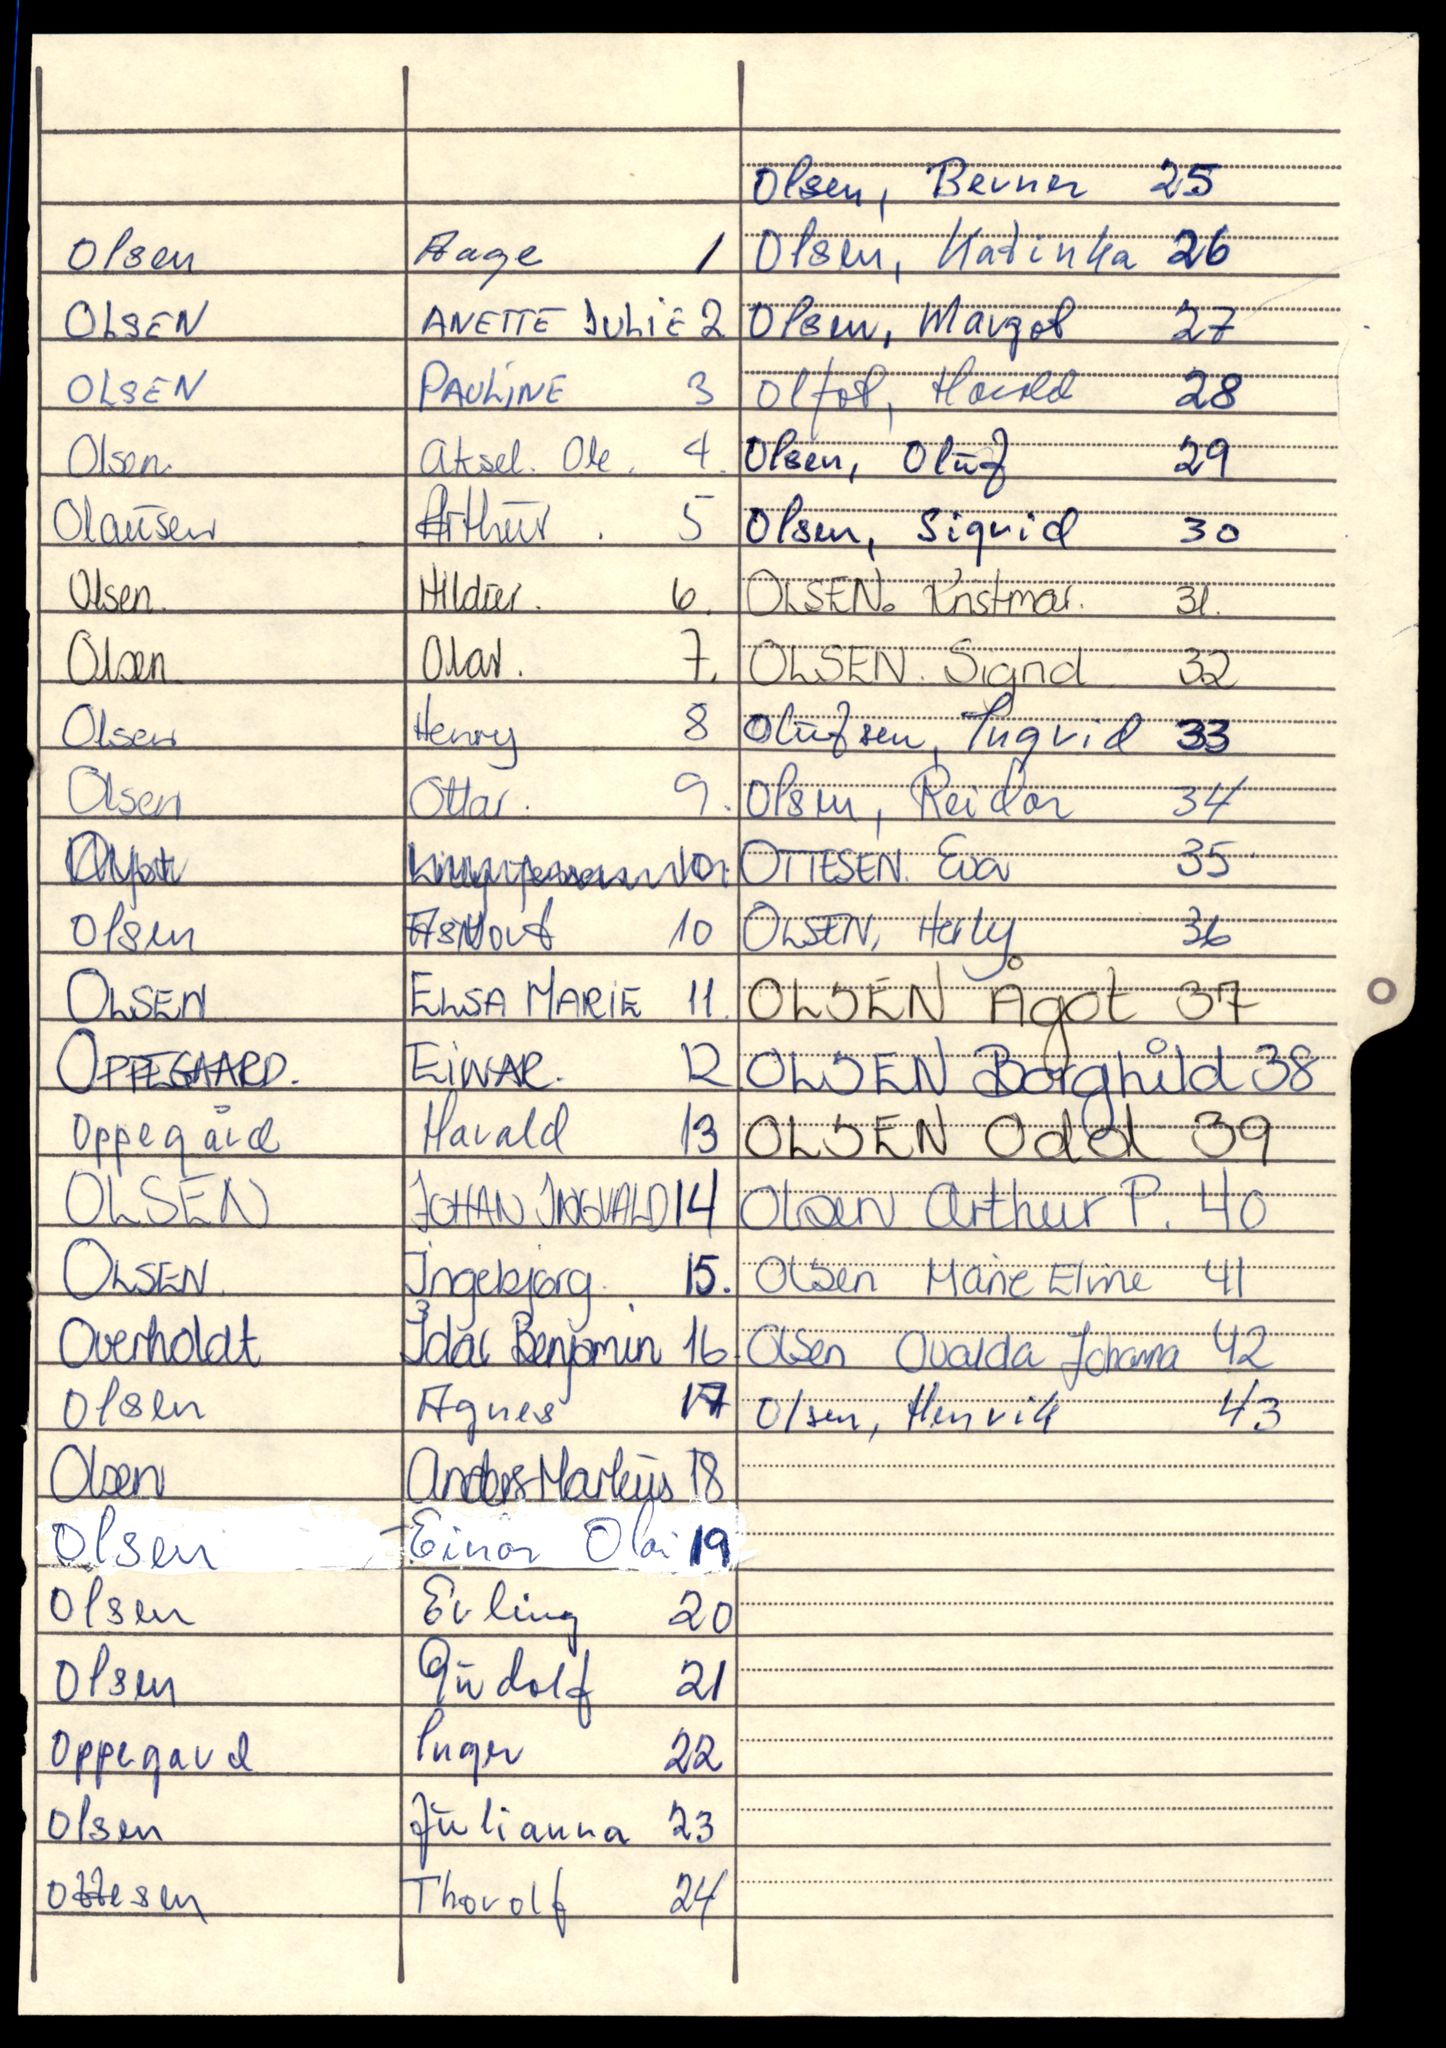 Olsen Aage 1
OLSEN ANETTE JULIE 2
OLSEN PAULINE 3
Olsen. Aksel. Ole. 4.
Olaŭsen Arthŭr. 5
Olsen. Hildŭr. 6.
Olsen Olav. 7.
Olsen Henry 8
Olsen Ottar. 9.
Olsen 10
OLSEN ELSA MARIE 11.
OPPEGAARD. EINAR. 12
Oppegård Harald 13
OLSEN JOHAN INGVALD 14
OLSEN. Ingebjørg. 15.
Overholdt Idar Benjamin 16
Olsen Agnes 17
Olsen Anders Markŭs 18
Olsen Einar Olai 19
Olsen Erling 20
Olsen Gŭdolf 21
Oppegard Inger 22
Olsen Jŭlianna 23
Ottesen Thorolf 24
Olsen, Berner 25
Olsen, Katinka 26
Olsen, Margot 27
Harald 28
Olsen, Olŭf 29
Olsen, Sigrid 30
OLSEN. Kristmar. 31.
OLSEN. Sigrid 32
Olŭfsen, Ingrid 33
Olsen, Reidar 34
OTTESEN. Eva 35
OLSEN, Herly 36
OLSEN Ågot 37
OLSEN Borghild 38
OLSEN Odd 39
Olsen Arthur P. 40
Olsen Marie Eline 41
Olsen Ovalda Johanna 42
Olsen, Henrik 43